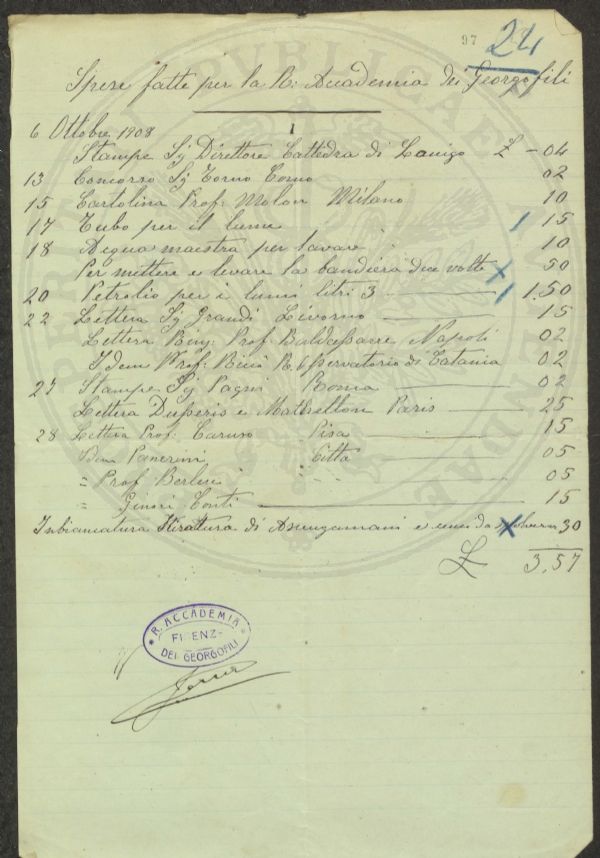 97 24
Spese fatte per la R: Accademia dei Georgofili
1
6 Ottobre 1908
Stampe Sg Direttore Cattedra di Lonigo £ - 04
13 Concorso Sg Torno Como 02
15 Cartolina Prof: Molon Milano 10
17 Tubo per il lume 15
18 Acqua maestra per lavare 10
Per mettere e levare la bandiera due volte 50
20 Petrolio per i lumi litri 3 1.50
22 Lettera Sg Grandi Livorno 15
Lettera Prof Baldassarre Napoli 02
Idem Prof: Ricci R. Osservatorio di Catania 02
27 Stampe Sg Pagni Roma 02
Lettera e Paris 25
28 Lettera Prof: Caruso Pisa 15
Panerini Città 05
" Prof Berlese " 05
" Ginori Conti 15
Inbiancatura Stiratura di Asciugamani e 30
£ 3.57
R. ACCADEMIA
FIRENZE
DEI GEORGOFILI
PVBLICAE